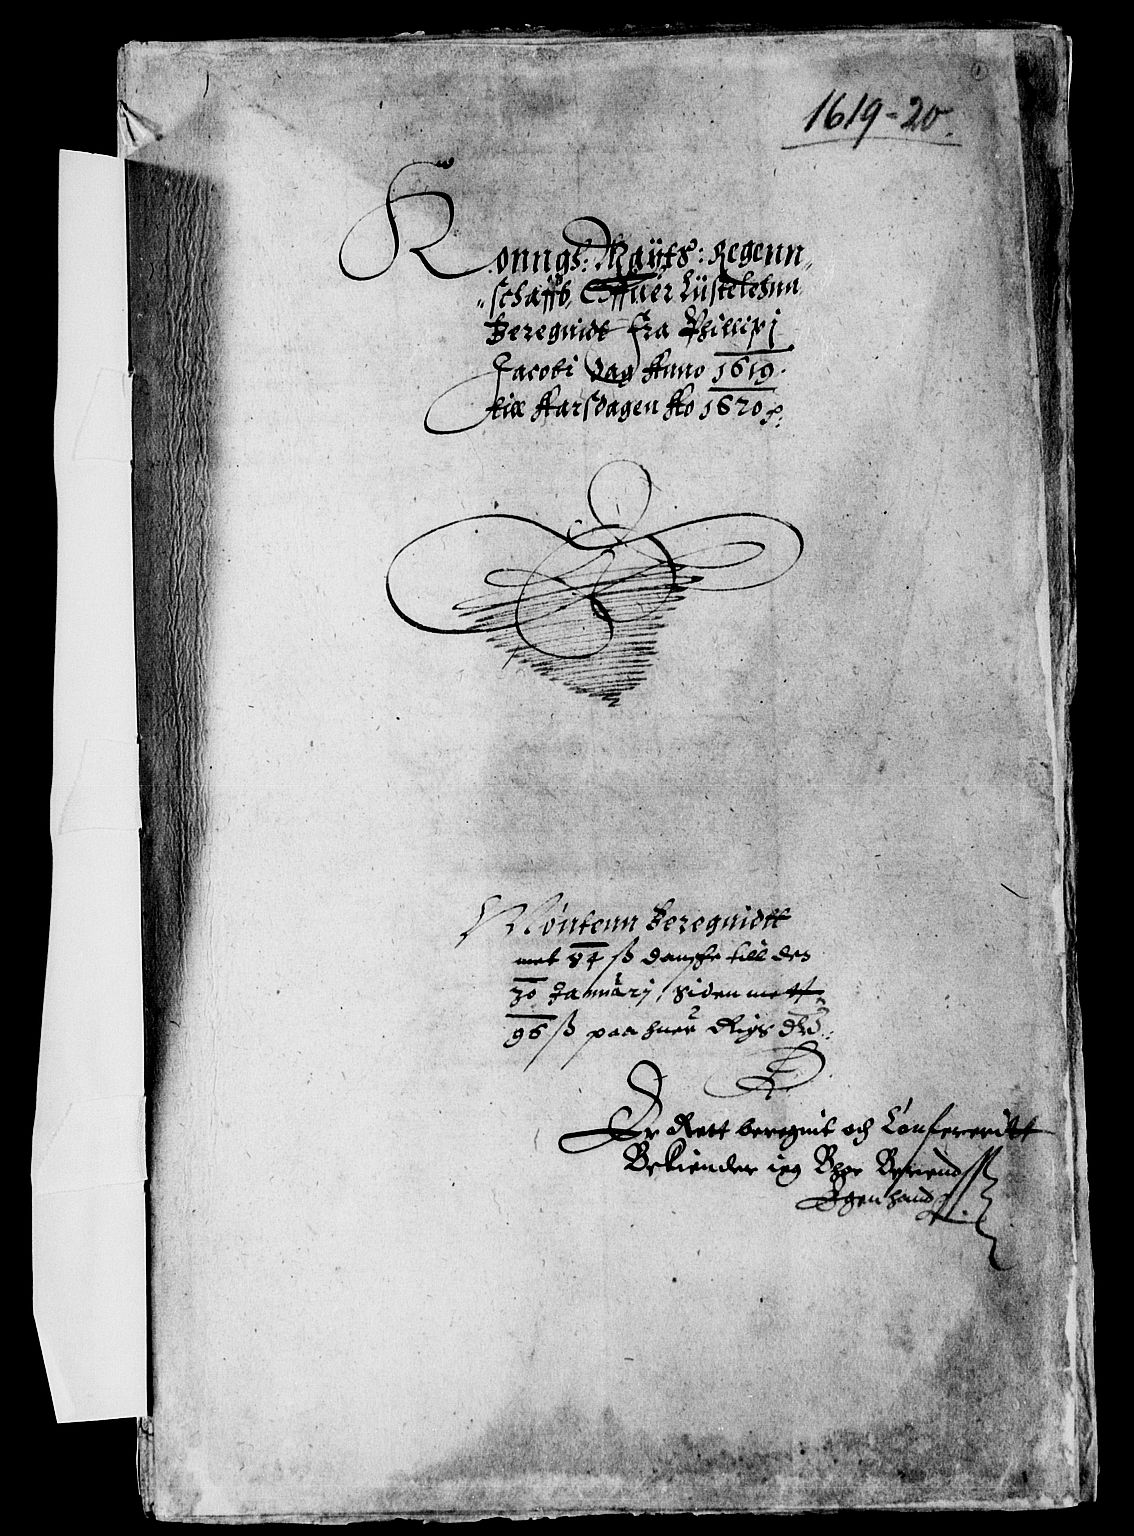 1619-20.
Konngs: Maÿts: Regenn„
„schaffs, Offuer Lüstelehnn
Beregnidt fra Phillipj
Jacobi dag Anno 1619.
till Aarsdagen Ao 1620
Möntenn Beregnidtt
met 84 ß danske till den
30 Januarj, Siden mett
96 ß paa huer Rigs
Er Rett beregnit och Confereritt
Bekiender ieg
Egen hand